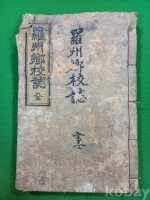 羅州鄕校誌
羅州鄕校誌
kobay